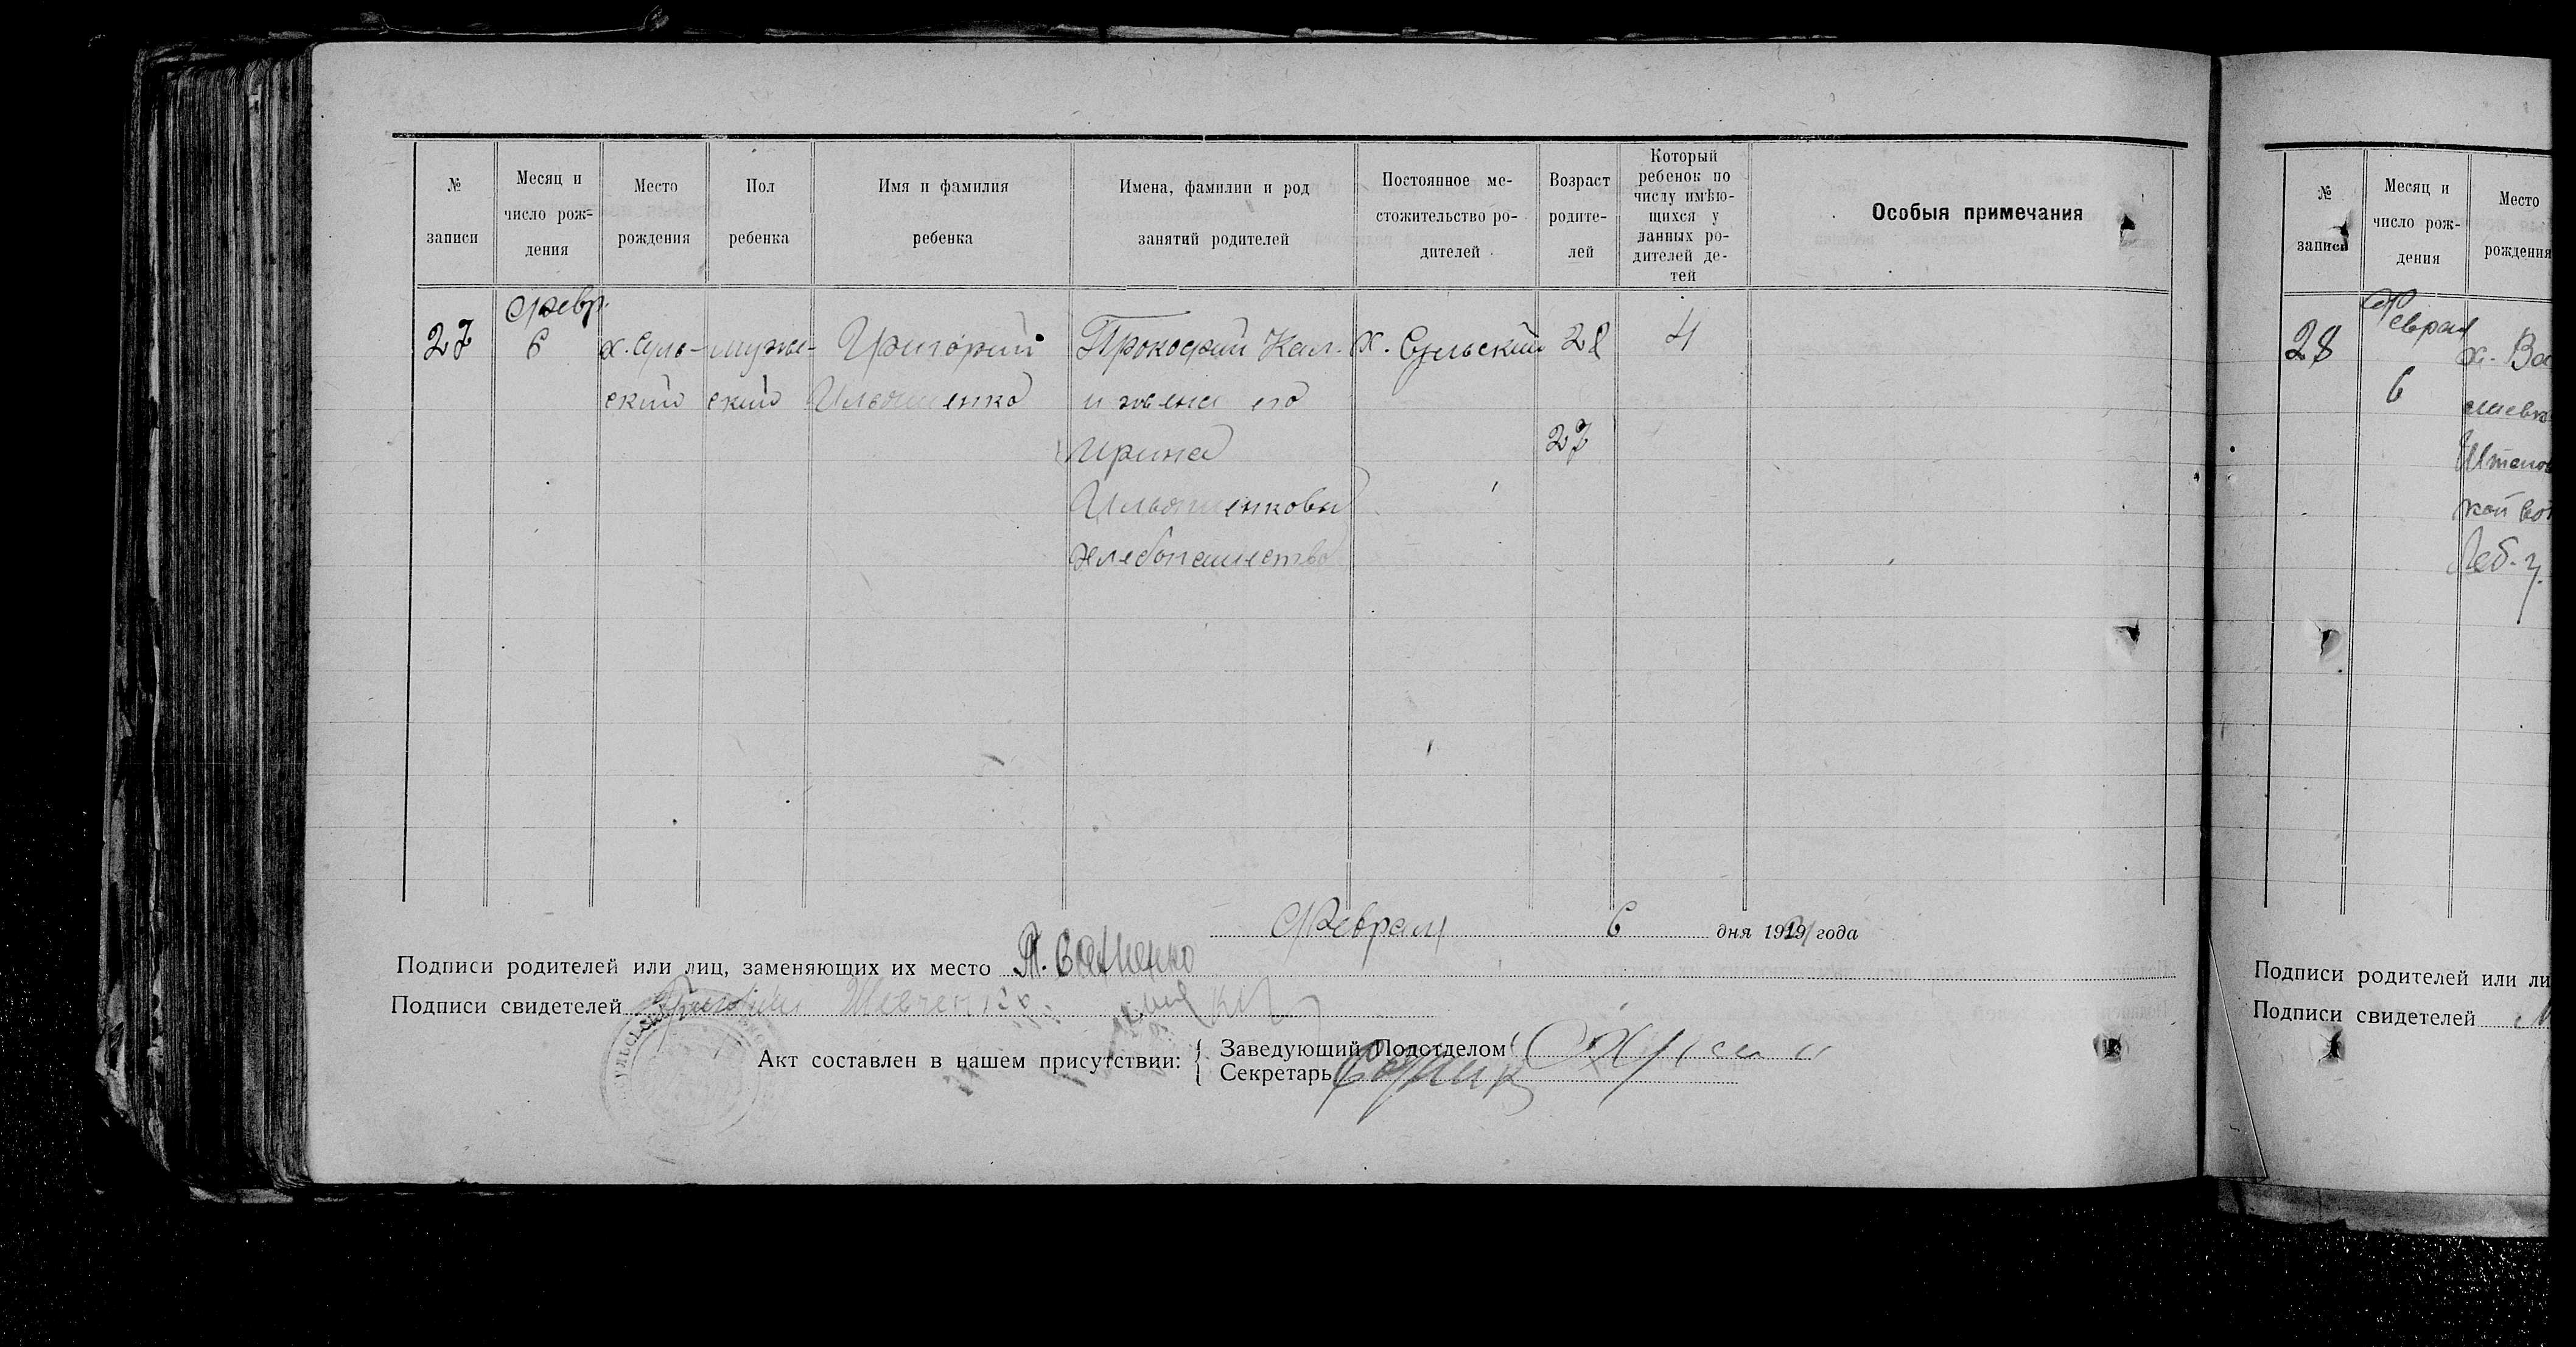 № записи
Месяц и число рож-дения
Место рождения
Пол ребенка
Имя и фамилия ребенка
Имена, фамилии и род занятий родителей
Постоянное ме-стожительство ро-дителей
Возраст родите-лей
Который ребенок по числу имѣю-щихся у данных ро-дителей де-тей
Особыя примечания
Февр.
27 6 х. Суль- мужс- Григорий Прокофий Кал. х. Сульский 28 4
ский ский Ильяшенко и жена его
Ирина 27
Ильяшенковы
хлебопашество
Февраля 6 дня 1921 года
Подписи родителей или лиц, заменяющих их место
Подписи свидетелей Григорий Шевченко
Акт составлен в нашем присутствии:
Заведующий Подотделом
Секретарь
№ записи
Месяц и число рож-дения
Место рождения
Февраля
28 х.
6
Подписи родителей или ли
Подписи свидетелей